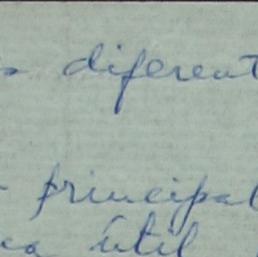 diferent
principal
útil